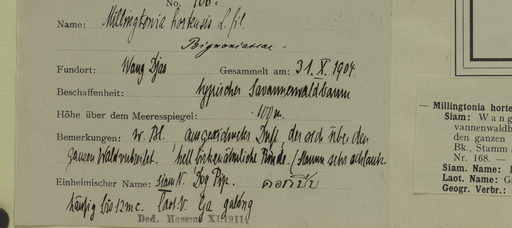 No. 168.
Name: Millingtonia hortensis L. fil.
Bignoniaceae.
Fundort: Wang Djao Gesammelt am: 31. X. 1904
Beschaffenheit: typischer Savannenwaldbaum
Höhe über dem Meeresspiegel: 100 m.
Bemerkungen: w. Bl. ausgezeichneter Duft, der sich über den
ganzen Wald verbreitet. hell Rinde. (Stamm sehr schlank
Einheimischer Name: Siam N. Dog Pip. ดอกปีบ
häufig bis 12 m. Laot. N. Ga
Ded. Hosseus XI 1911
— Millingtonia hor
Siam: Wang
vannenwaldb
den ganzen
Bk., Stamm s
Nr. 168. —
Siam. Name:
Laot. Name: G
Geogr. Verbr.: